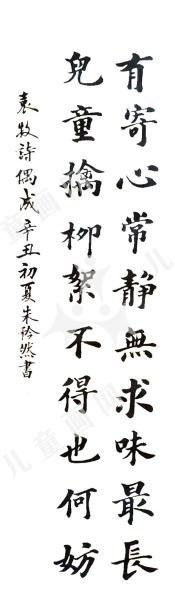 有寄心常静無求味最長
兒童擒柳絮不得也何妨
袁牧詩偶成辛丑初夏朱然書
儿童画网